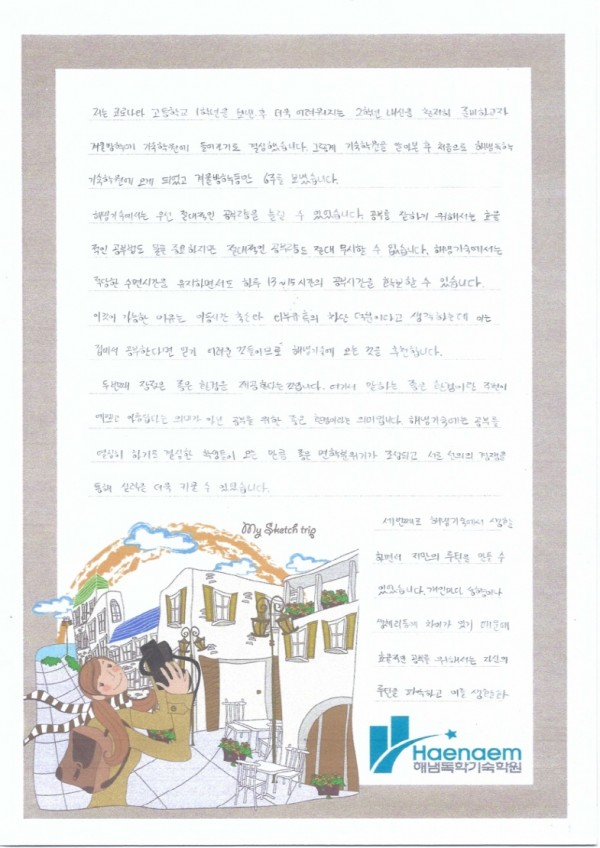 저는 코로나와 고등학교 1학년을 보낸 후 더욱 어려워지는 2학년 내신을 철저히 준비하고자
겨울방학에 기숙학원에 들어가기로 결심했습니다. 그렇게 기숙학원을 알아본 후 처음으로 해냄독학
기숙학원에 오게 되었고 겨울방학동안 6주를 보냈습니다.
해냄기숙에서는 우선 절대적인 공부량을 늘릴 수 있었습니다. 공부를 잘하기 위해서는 효율
적인 공부법도 물론 중요하지만 절대적인 공부량도 절대 무시할 수 없습니다. 해냄기숙에서는
적당한 수면시간을 유지하면서도 하루 13~15시간의 공부시간을 확보할 수 있습니다.
이것이 가능한 이유는 이동시간 축소와 외부유혹의 차단 덕분이라고 생각하는데 이는
집에서 공부한다면 얻기 어려운 것들이므로 해냄기숙에 오는 것을 추천합니다.
두번째 장점은 좋은 환경을 제공한다는 것입니다. 여기서 말하는 좋은 환경이란 조경이
예쁘고 아름답다는 의미가 아닌 공부를 위한 좋은 환경이라는 의미입니다. 해냄기숙에는 공부를
열심히 하기로 결심한 학생들이 오는 만큼 좋은 면학분위기가 조성되고 서로 선의의 경쟁을
통해 실력을 더욱 키울 수 있었습니다.
My Sketch trip
세번째로 해냄기숙에서 생활
하면서 저만의 루틴을 만들 수
있었습니다. 개인마다 성향이나
생체리듬에 차이가 있기 때문에
효율적인 공부를 위해서는 자신의
루틴을 파악하고 이를 생활화
Haenaem
해냄독학기숙학원